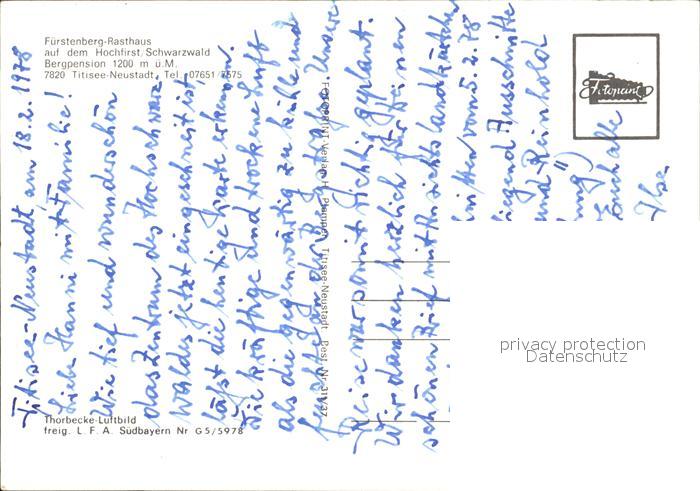 Fürstenberg-Rasthaus
auf dem Hochfirst/Schwarzwald
Bergpension 1200 m ü.M.
7820 Titisee-Neustadt, Tel. 07651/7575
Fotoprint
Titisee-Neustadt, am 18.2.1978
Liebe Hanni mit Familie!
Wie tief und wunderschön
das Zentrum des Hochschwarz-
waldes jetzt eingeschneit ist,
läßt die heutige Karte erkennen.
Die kräftige und trockene Luft
als die gegenwärtig zu kühle und
Unsere
Reise war somit richtig geplant.
Wir danken herzlich für Ihren
schönen Brief mit Ansichtslandkärtchen
von 5.2.78
Ausschnitte
und Reinhold
alle
Ilse
FOTOPRINT-Verlag H. Titisee-Neustadt Best. Nr. 311/37
privacy protection
Datenschutz
Thorbecke-Luftbild
freig. L. F. A. Südbayern Nr G 5/5978